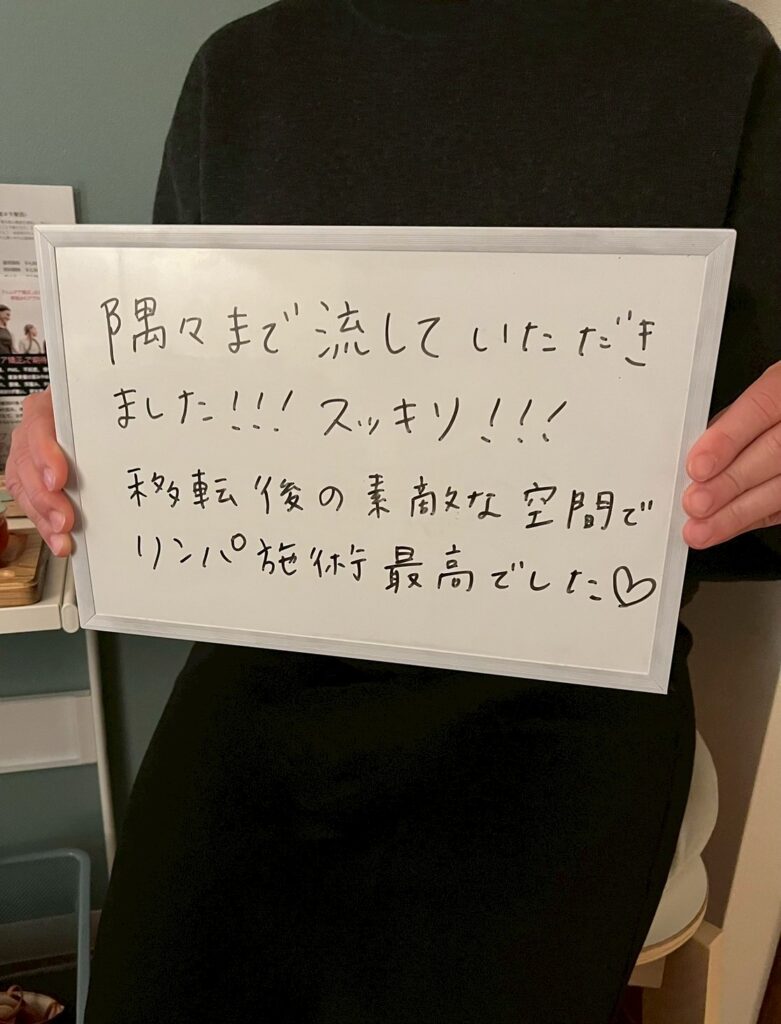 隅々まで流していただき
ました!!! スッキリ!!!
移転後の素敵な空間で
リンパ施術最高でした♡